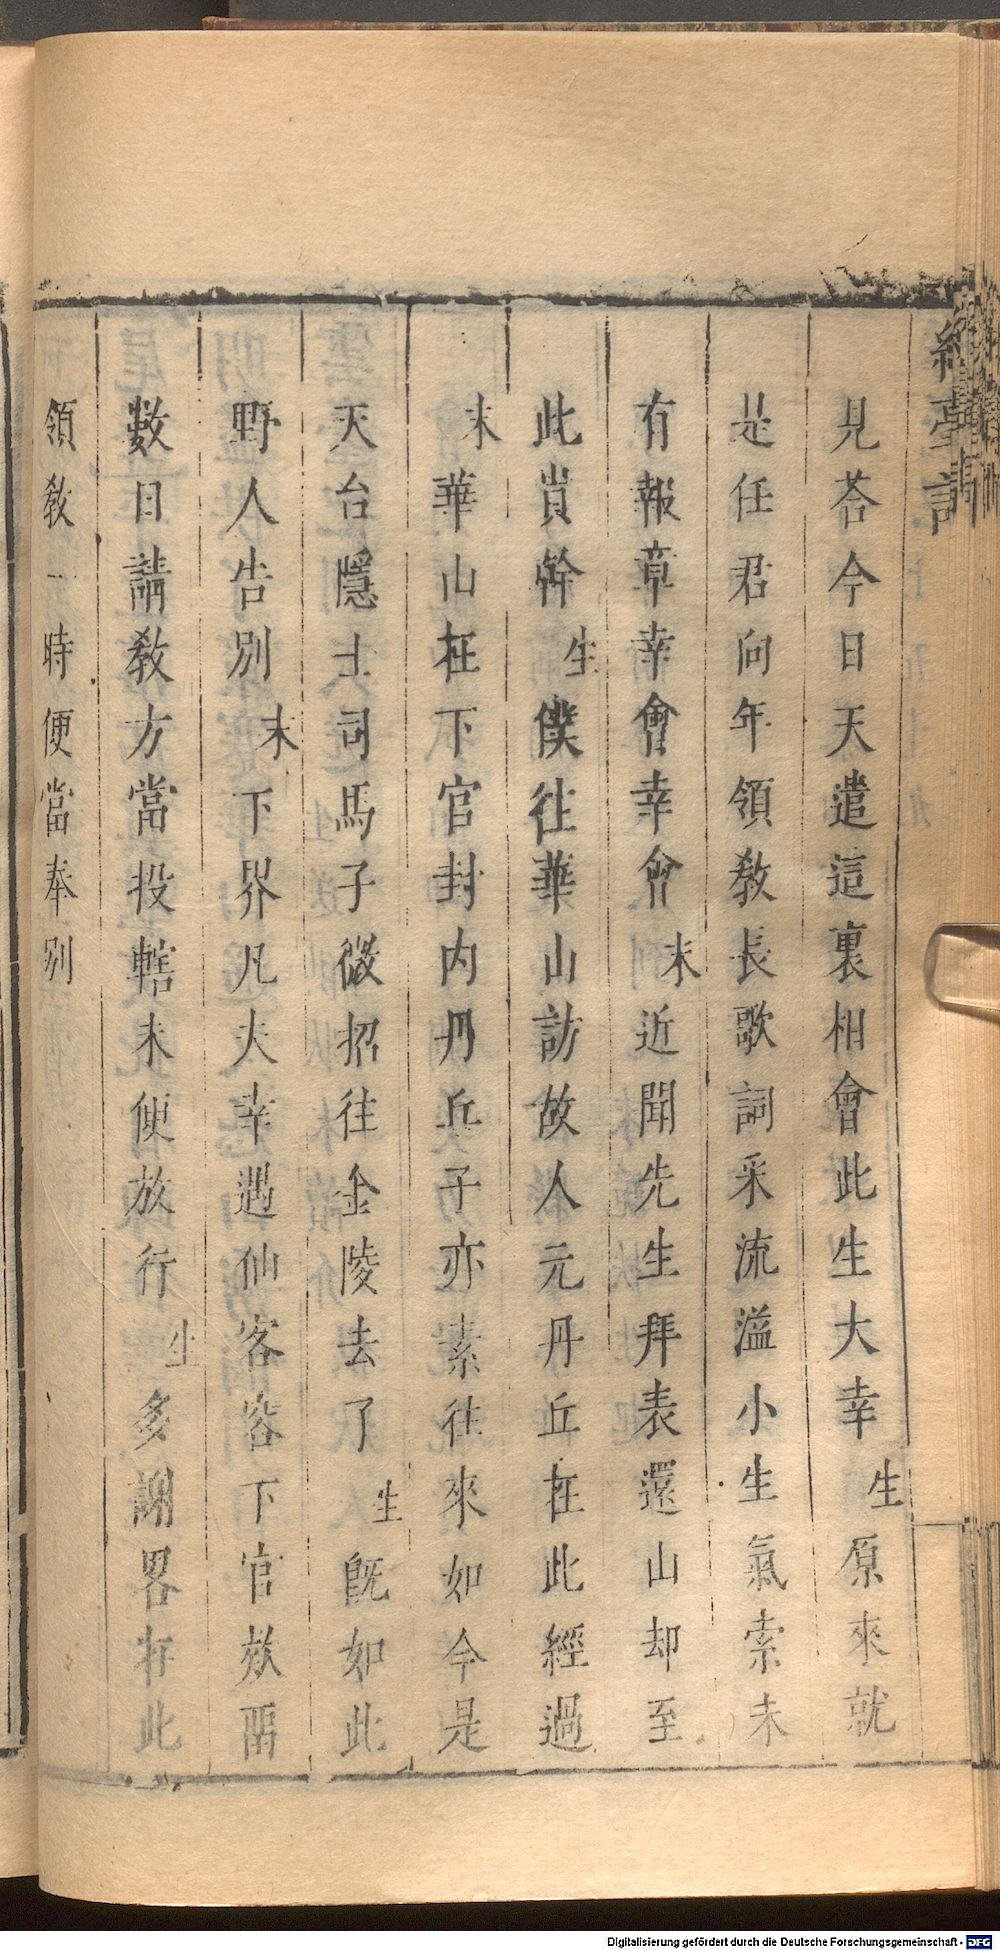 見荅今日天遣這裏相會此生大幸生原來就
是任君向年領敎長歌詞采流溢小生氣索未
有報章幸會幸會末近聞先生拜表還山却至
此貴幹生僕往華山訪故人元丹丘在此經過
末華山在下官封内丹丘子亦素往來如今是
天台隱士司馬子微招往金陵去了生旣如此
野人告別末下界凡夫幸遇仙客容下官款畱
數日請敎方當投轄未便放行生多謝畧在此
領敎一時便當奉別
Digitalisierung gefördert durch die Deutsche Forschungsgemeinschaft - DFG